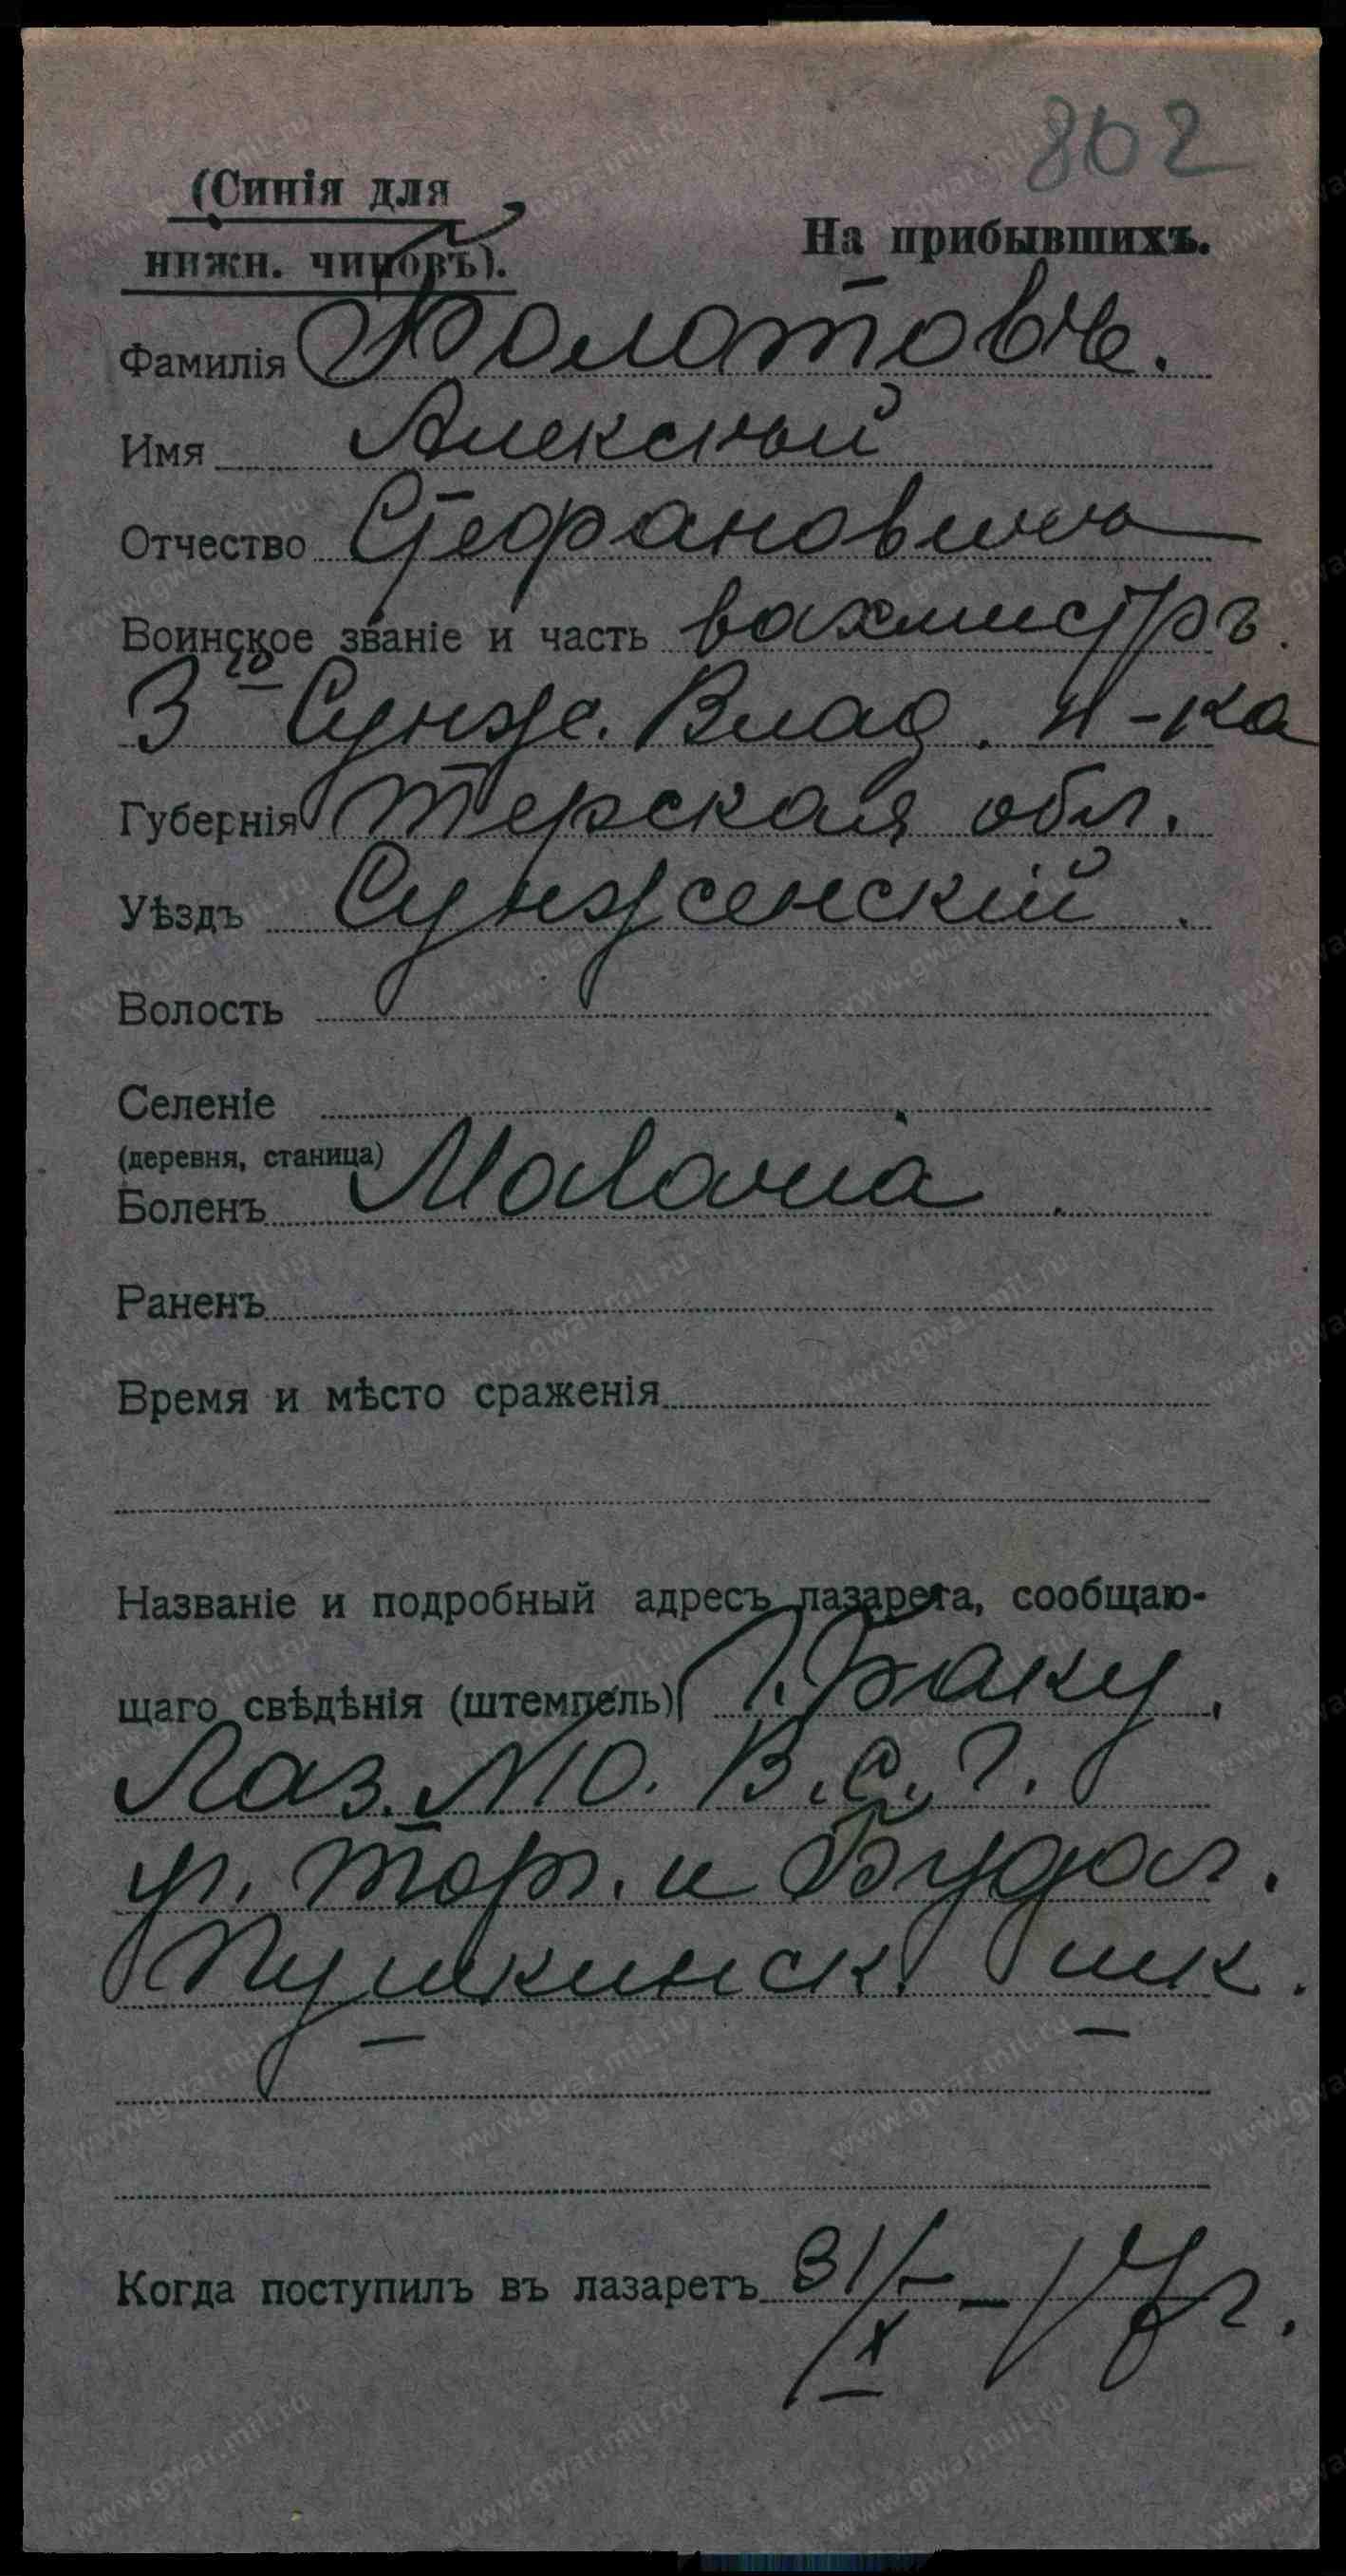 862
(Синія для
нижн. чиновъ).
На прибывшихъ.
Фамилія Болотовъ.
Имя Алексѣй
Отчество Стефановичъ
Воинское званіе и часть вахмистръ.
3го Сунж. Влад. п-ка
Губернія Терская обл.
Уѣздъ Сунженскій.
Волость
Селеніе
(деревня, станица)
Боленъ Malaria
Раненъ
Время и мѣсто сраженія
Названіе и подробный адресъ лазарета, сообщаю-
щаго свѣдѣнія (штемпель) г. Баку.
Лаз. №10. В.С.Г.
уг. Торг. и Будаг.
Пушкинск. шк.
Когда поступилъ въ лазаретъ 31/X – 17 г.